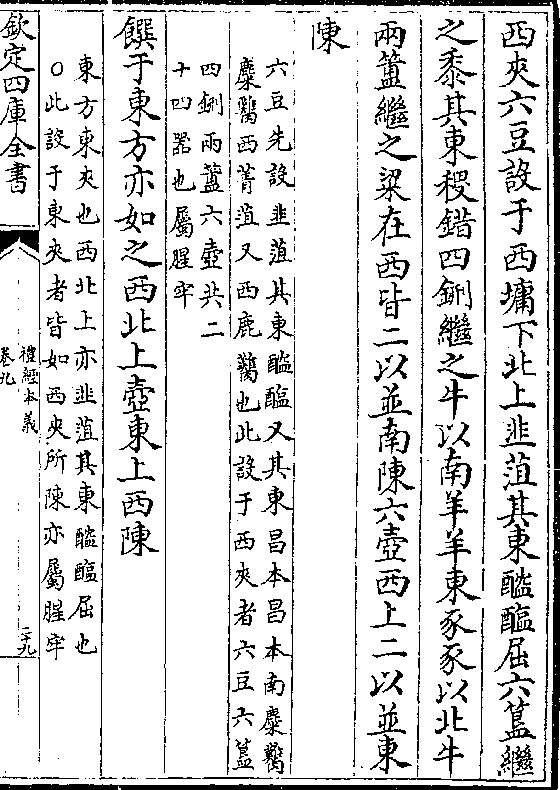 西夾六豆設于西墉下北上韭菹其東醓醢屈六簋繼
之黍其東稷錯四鉶繼之牛以南羊羊東豕豕以北牛
兩簠繼之粱在西皆二以並南陳六壺西上二以並東
陳
六豆先設韭菹其東醓醢又其東昌本昌本南麋臡
麋臡西菁菹又西鹿臡也此設于西夾者六豆六簋
四鉶兩簠六壺共二
十四器也屬腥牢
饌于東方亦如之西北上壺東上西陳
東方東夾也西北上亦韭菹其東醓醢屈也
○此設于東夾者皆如西夾所陳亦屬腥牢
欽定四庫全書
禮經本義
卷九
二十九